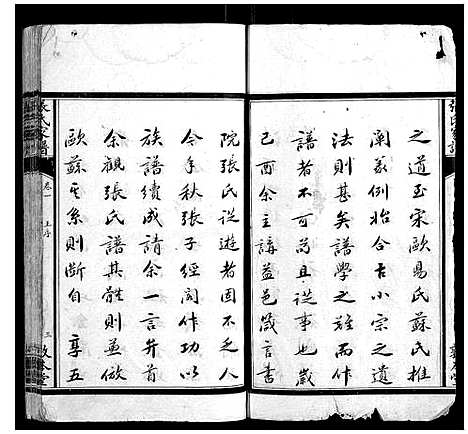 之道至宋歐陽氏蘇氏推
闡義例始合古小宗之遺
法則甚矣譜學之難而作
譜者不可苟且從事也歲
己酉余主講益邑箴言書
院張氏從遊者固不乏人
今年秋張子經閣作功以
族譜續成請余一言弁首
余觀張氏譜其體則並倣
歐蘇其系則斷自 享五
張氏家譜
卷一
王序
三
敦本堂